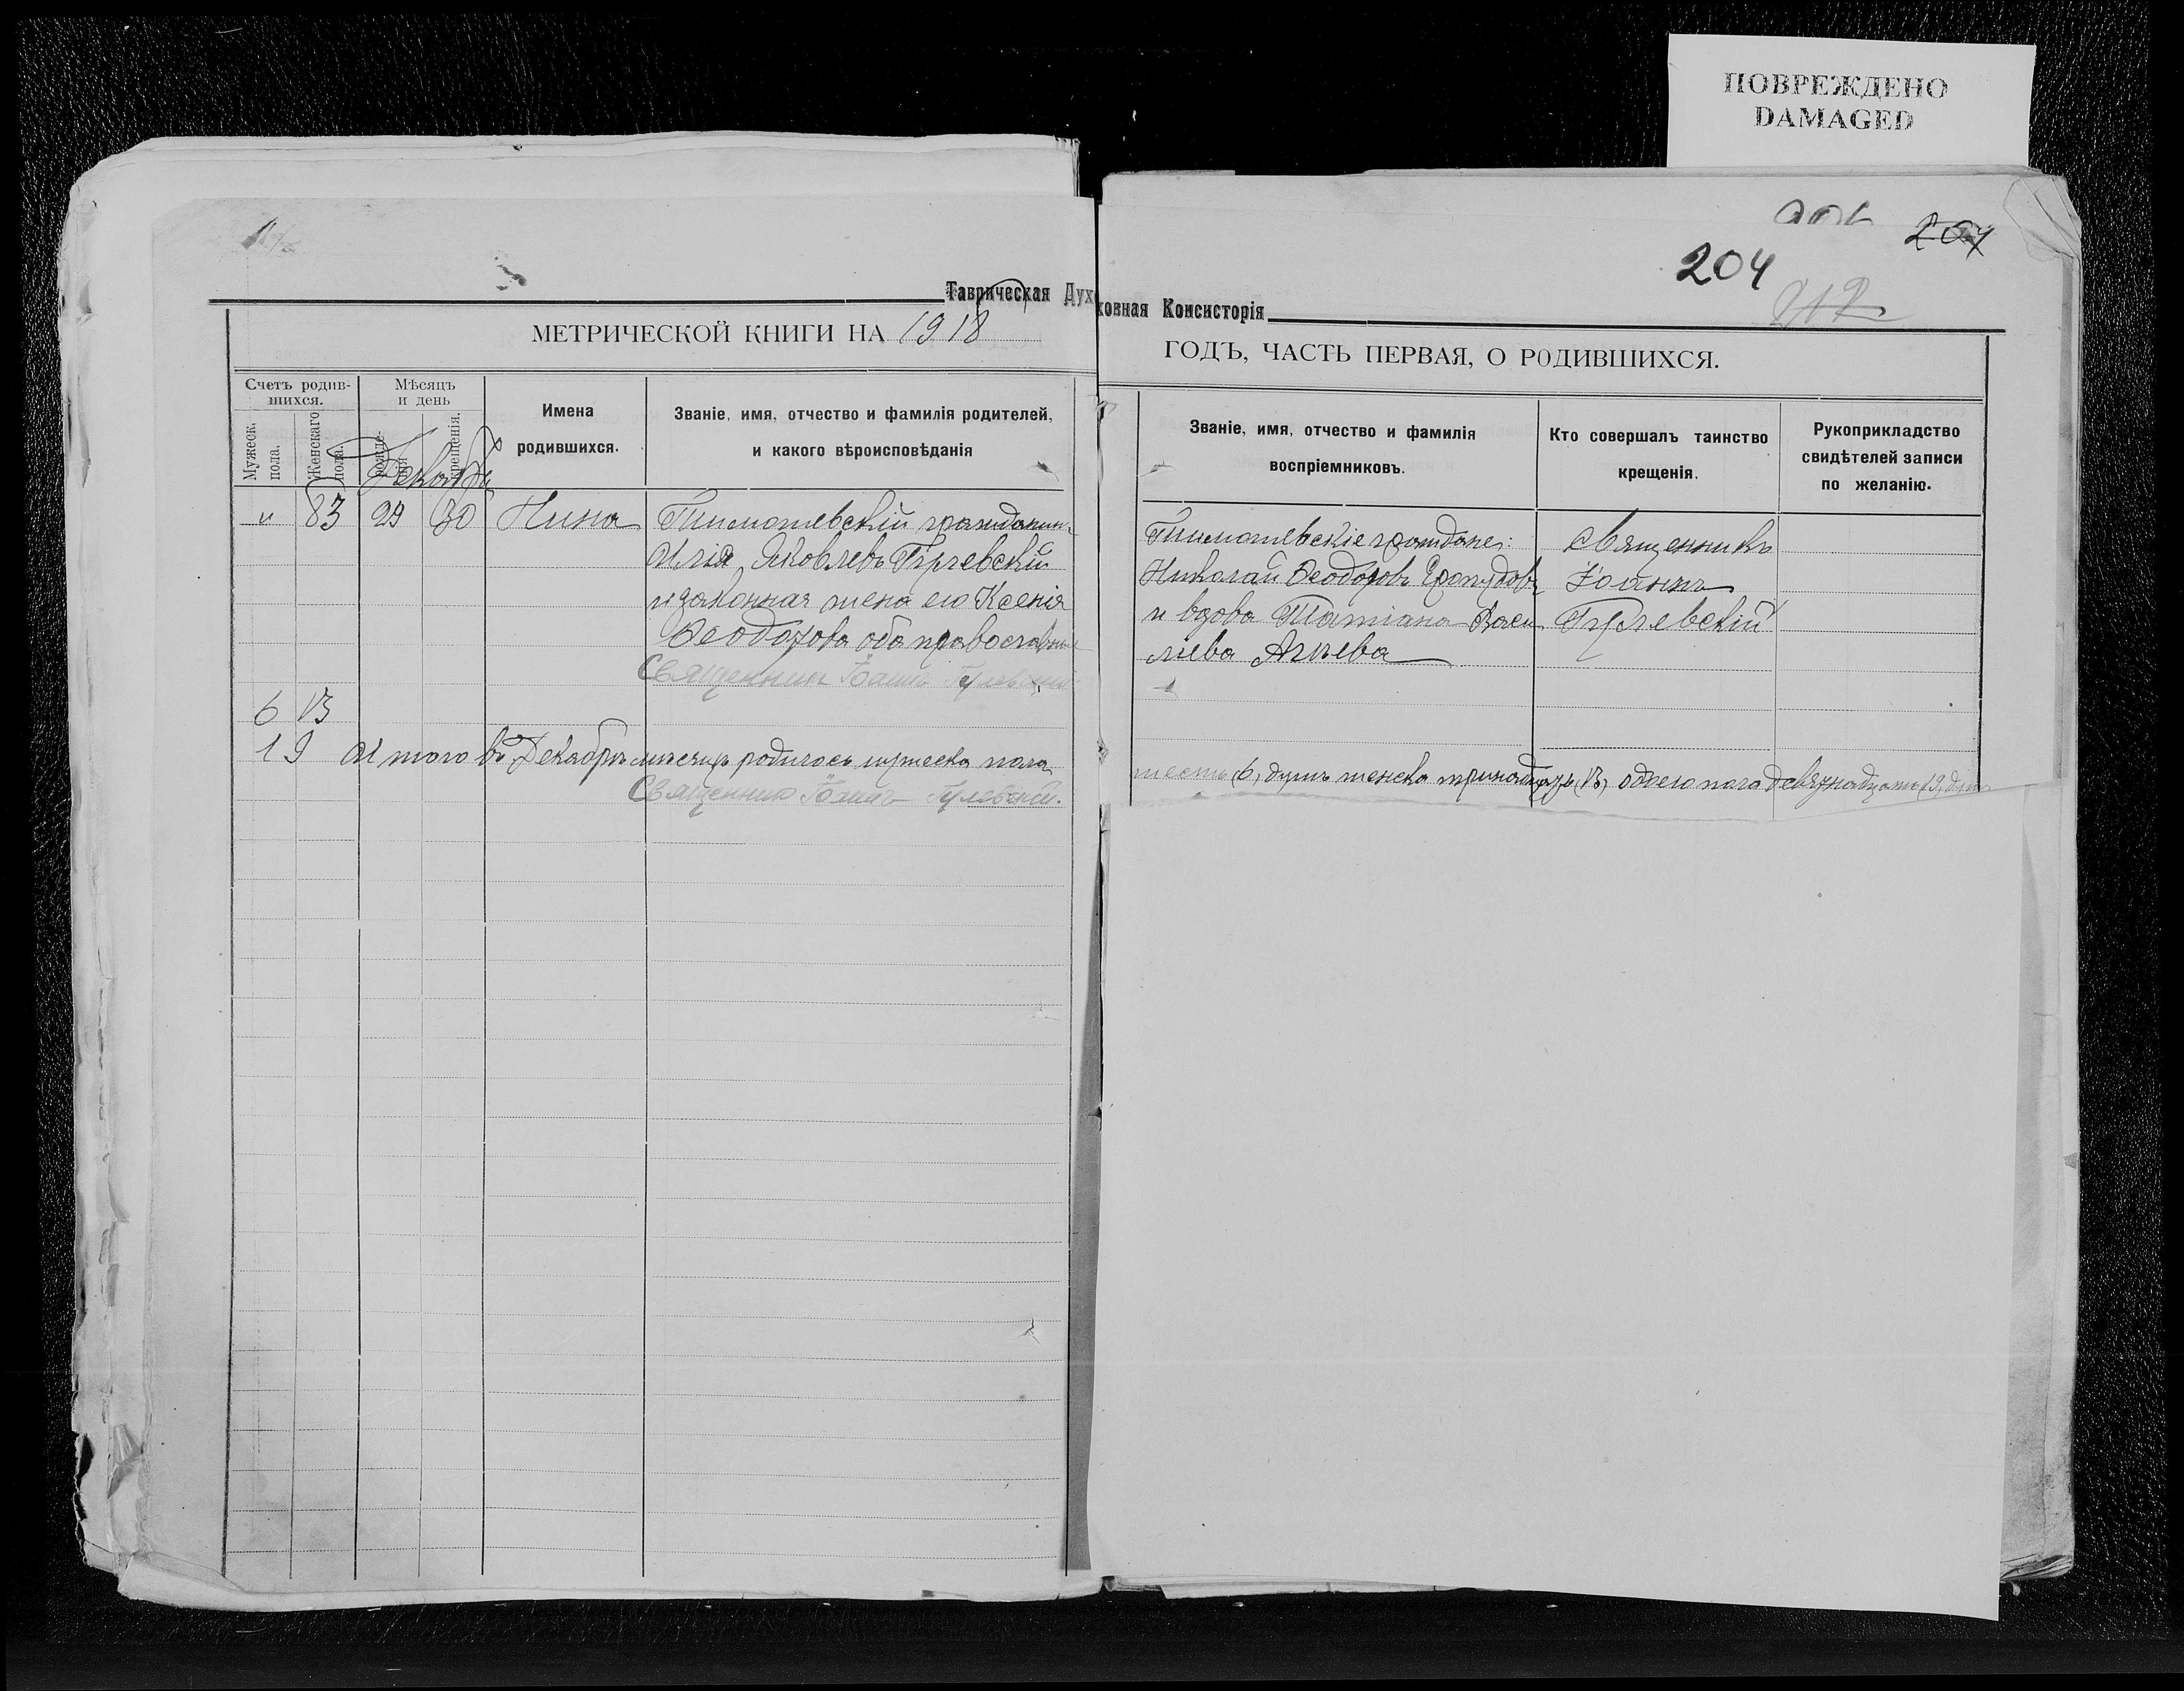 ПОВРЕЖДЕНО
DAMAGED
204
204
212
Таврическая Духовная Консисторія
МЕТРИЧЕСКОЙ КНИГИ НА 1918
ГОДЪ, ЧАСТЬ ПЕРВАЯ, О РОДИВШИХСЯ.
Счетъ родив-
шихся.
Мужеск. пола.
Женскаго пола.
Мѣсяцъ
и день
рожде-
нія
крещенія.
Имена
родившихся.
Званіе, имя, отчество и фамилія родителей,
и какого вѣроисповѣданія
Званіе, имя, отчество и фамилія
воспріемниковъ.
Кто совершалъ таинство
крещенія.
Рукоприкладство
свидѣтелей записи
по желанію.
Декабрь
" 83 29 30 Нина
Тимошевскій гражданин
Илія Яковлевъ
и законная жена его Ксенія
Ѳеодорова оба православные
Священник Іоаннъ
Тимошевскіе граждане:
Николай Ѳеодоровъ
и вдова Татіана Васи
лиева
Священникъ
Іоаннъ
6 13
19 Итого въ Декабрѣ мѣсяцѣ родилось мужеска пола
шесть (6) душъ женска тринадцать (13) обоего пола девятнадцать (19) душъ
Священник Іоаннъ